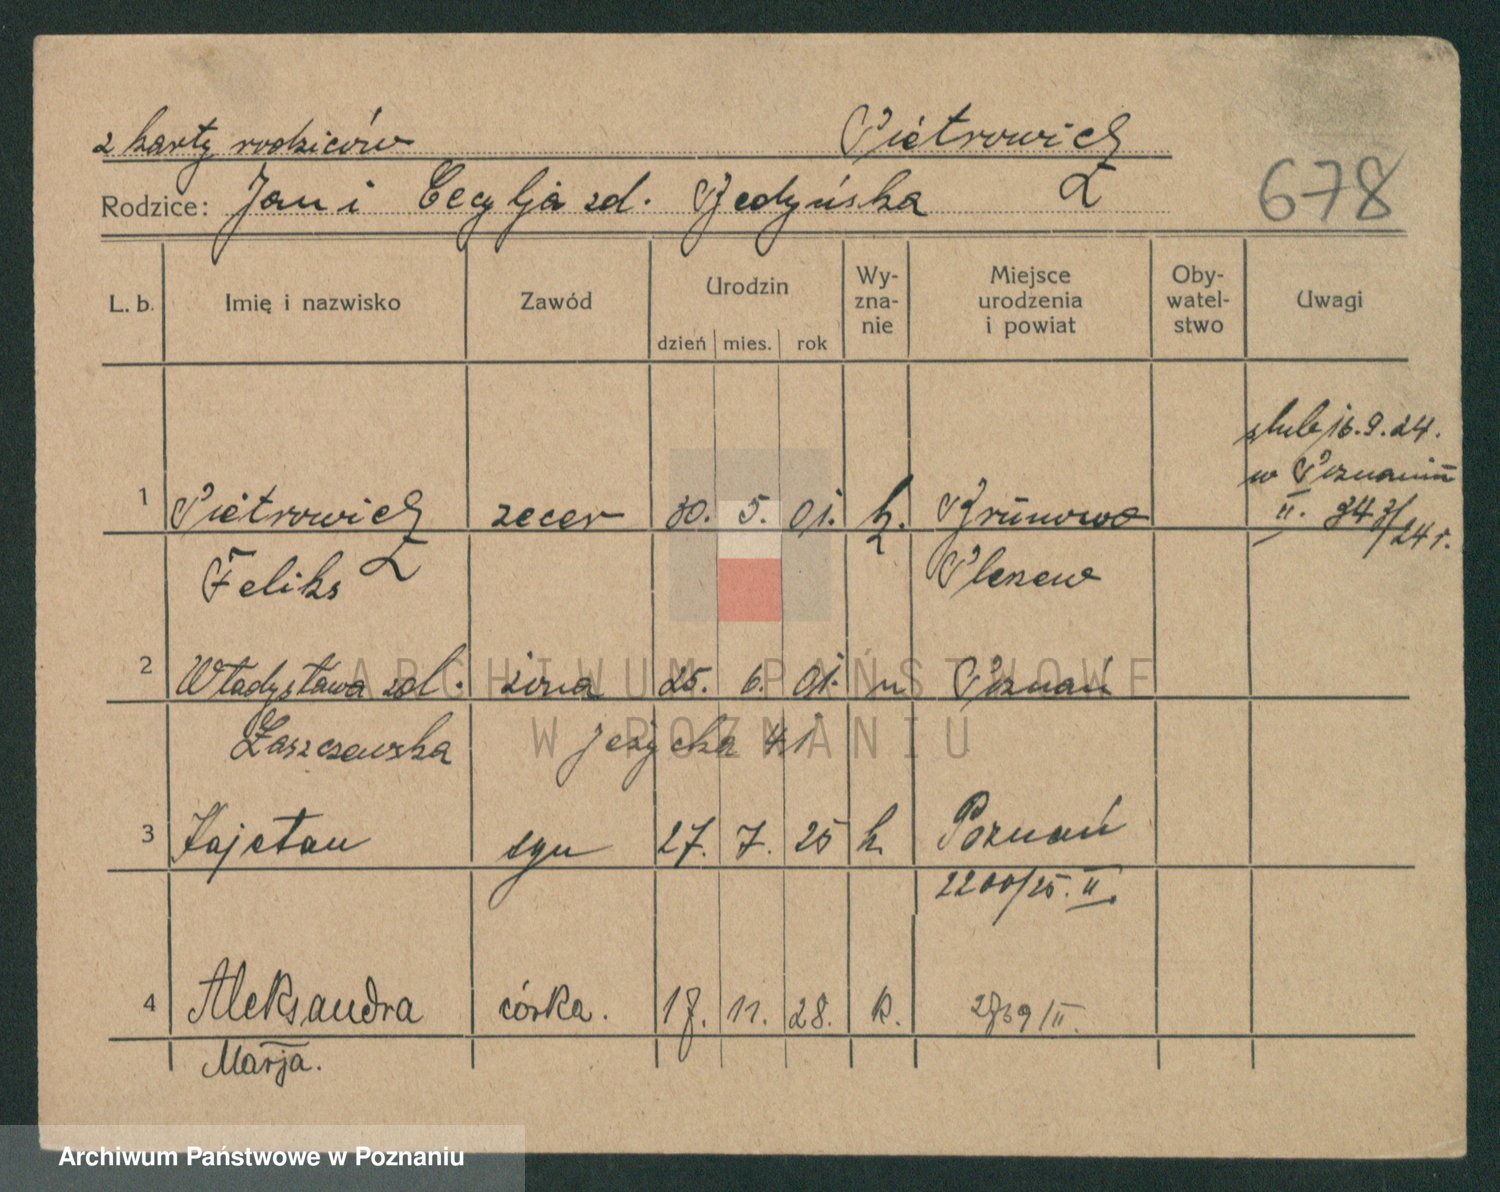 z karty rodziców Pietrowicz
Rodzice: Jan i Cecylja zd. Jedyńska 678
L. b. Imię i nazwisko Zawód Urodzin dzień mies. rok Wy-zna-nie Miejsce urodzenia i powiat Oby-watel-stwo Uwagi
ślub 16.9.24.
w Poznaniu
1 Pietrowicz zecer 30. 5. 01. k. II. 343/24 r.
Feliks Pleszew
2 Władysława zd. żona 25. 6. 01. Poznań
Łaszczewska Jeżycka 41
3 Kajetan syn 27. 7. 25 k. Poznań
2200/25. II.
4 Aleksandra córka. 17. 11. 28. k. /II.
Marja.
ARCHIWUM PAŃSTWOWE
W POZNANIU
Archiwum Państwowe w Poznaniu